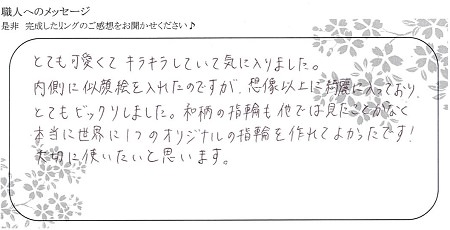 職人へのメッセージ
是非 完成したリングのご感想をお聞かせください♪
とても可愛くて キラキラしていて気に入りました。
内側に似顔絵を入れたのですが、想像以上に綺麗に入っており、
とてもビックリしました。和柄の指輪も他では見たことがなく
本当に世界に1つのオリジナルの指輪を作れてよかったです！
大切に使いたいと思います。